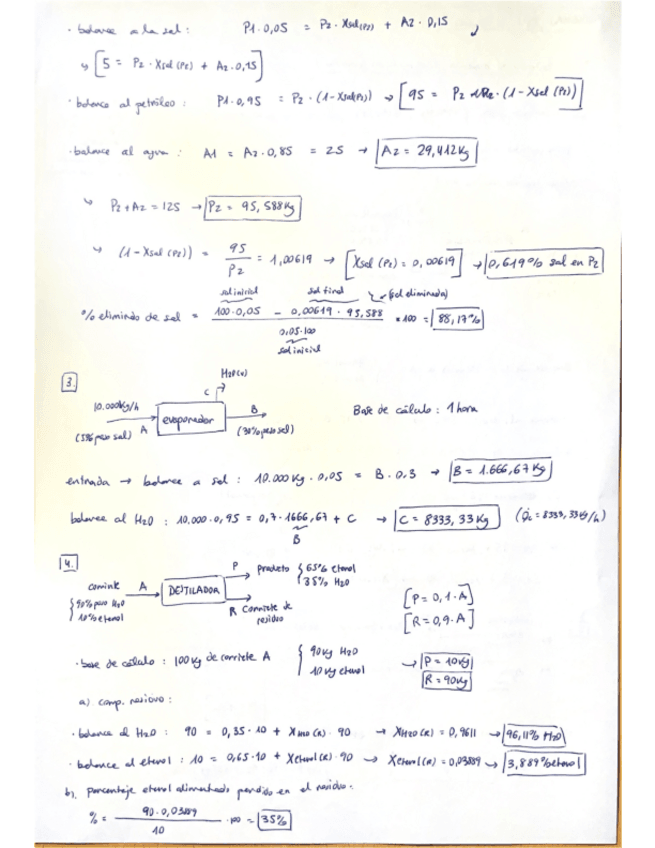 · balance a la sal : P1·0,05 = P2·Xsal(P2) + A2·0,15
↳ [5 = P2·Xsal(P2) + A2·0,15]
· balance al petróleo : P1·0,95 = P2·(1-Xsal(P2)) → [95 = P2·(1-Xsal(P2))]
· balance al agua : A1 = A2·0,85 = 25 → A2 = 29,412Kg
↳ P2+A2 = 125 → P2 = 95,588Kg
↳ (1-Xsal(P2)) = 95/P2 = 1,00619 → [Xsal(P2) = 0,00619] → 0,619% sal en P2
sal inicial sal final (sal eliminada)
% elimindo de sal = (100·0,05 - 0,00619·95,588)/(0,05·100) ×100 = 88,17%
sal inicial
3.
H2O(v)
10.000Kg/h C B Base de cálculo : 1 hora
A evaporador
(5% peso sal) (30% peso sal)
entrada → balance a sal : 10.000 Kg·0,05 = B·0,3 → B = 1.666,67Kg
balance al H2O : 10.000·0,95 = 0,7·1666,67 + C → C = 8333,33Kg (Qc = 8333,33Kg/h)
B
4.
P Producto { 65% etanol
35% H2O
corriente A DESTILADOR
{ 90% peso H2O
10% etanol
R Corriente de residuo
[P = 0,1·A]
[R = 0,9·A]
· base de cálculo : 100 Kg de corriente A { 90Kg H2O
10Kg etanol
→ P = 10Kg
R = 90Kg
a) comp. residuo :
· balance al H2O : 90 = 0,35·10 + XH2O(R)·90 → XH2O(R) = 0,9611 → 96,11% H2O
· balance al etanol : 10 = 0,65·10 + Xetanol(R)·90 → Xetanol(R) = 0,03889 → 3,889% etanol
b). Porcentaje etanol alimentado perdido en el residuo.
% = (90·0,03889)/10 ·100 = 35%